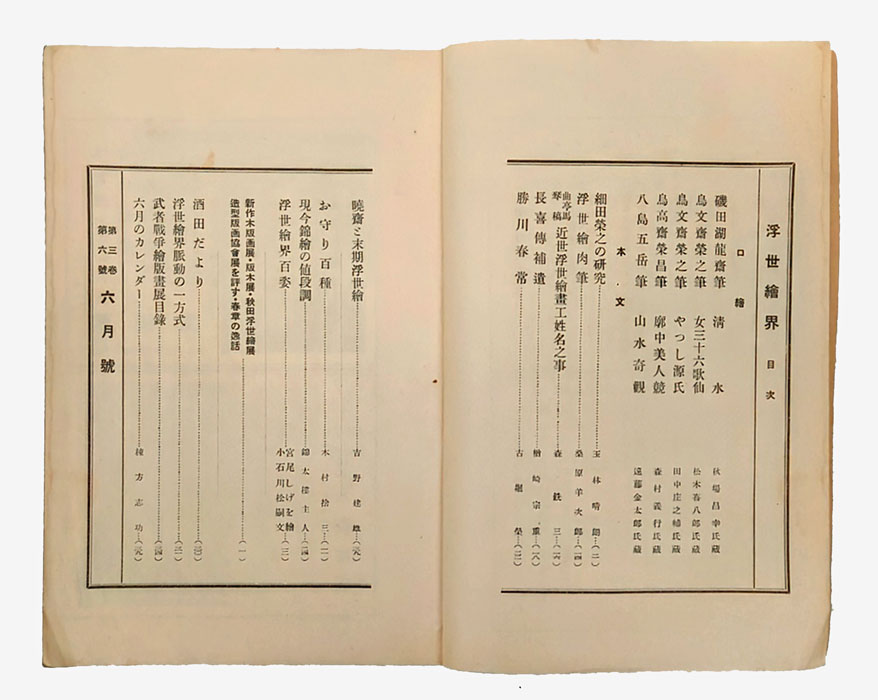 浮世繪界 目次
口繪
磯田湖龍齋筆 淸水 秋場昌幸氏藏
鳥文齋榮之筆 女三十六歌仙 松木喜八郎氏藏
鳥文齋榮之筆 やつし源氏 田中庄之輔氏藏
鳥高齋榮昌筆 廓中美人競 森村義行氏藏
八島五岳筆 山水奇觀 遠藤金太郎氏藏
本文
細田榮之の硏究 玉林晴朗…(二)
浮世繪肉筆 桑原羊次郎…(四)
曲亭馬琴稿 近世浮世繪畫工姓名之事 森銑三
長喜傳補遺 楢崎宗重
勝川春常 古堀榮
曉齋と末期浮世繪 吉野
お守り百種 木村捨三
現今錦繪の値段調 錦太樓主人
浮世繪界百姿 宮尾しげを繪 小石川松嗣文…(三)
新作木版画展・版木展・秋田浮世繪展
造型版画協會展を評す・春章の逸話…(一)
酒田だより
浮世繪界脈動の一方式
武者戰爭繪版畫展目錄
六月のカレンダー 棟方志功
第三卷
第六號 六月號